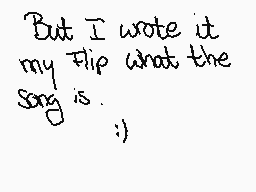 But I wrote it
my Flip what the
song is.
:)